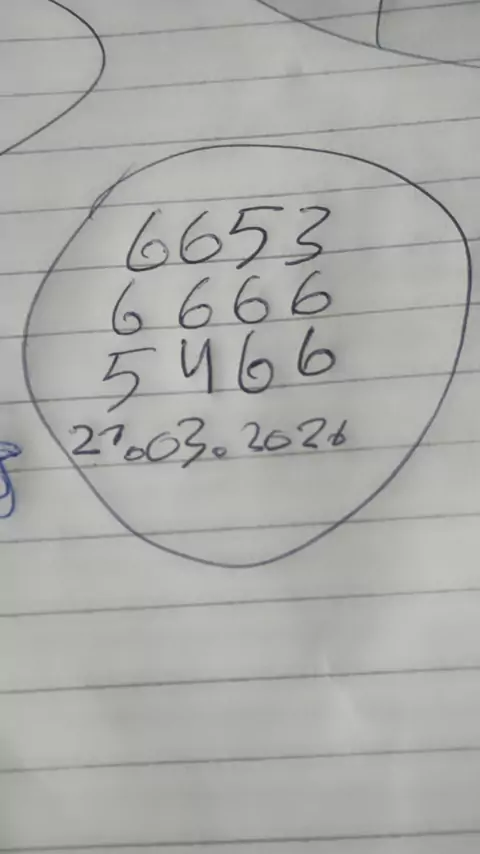 6653
6666
5466
27.03.2026